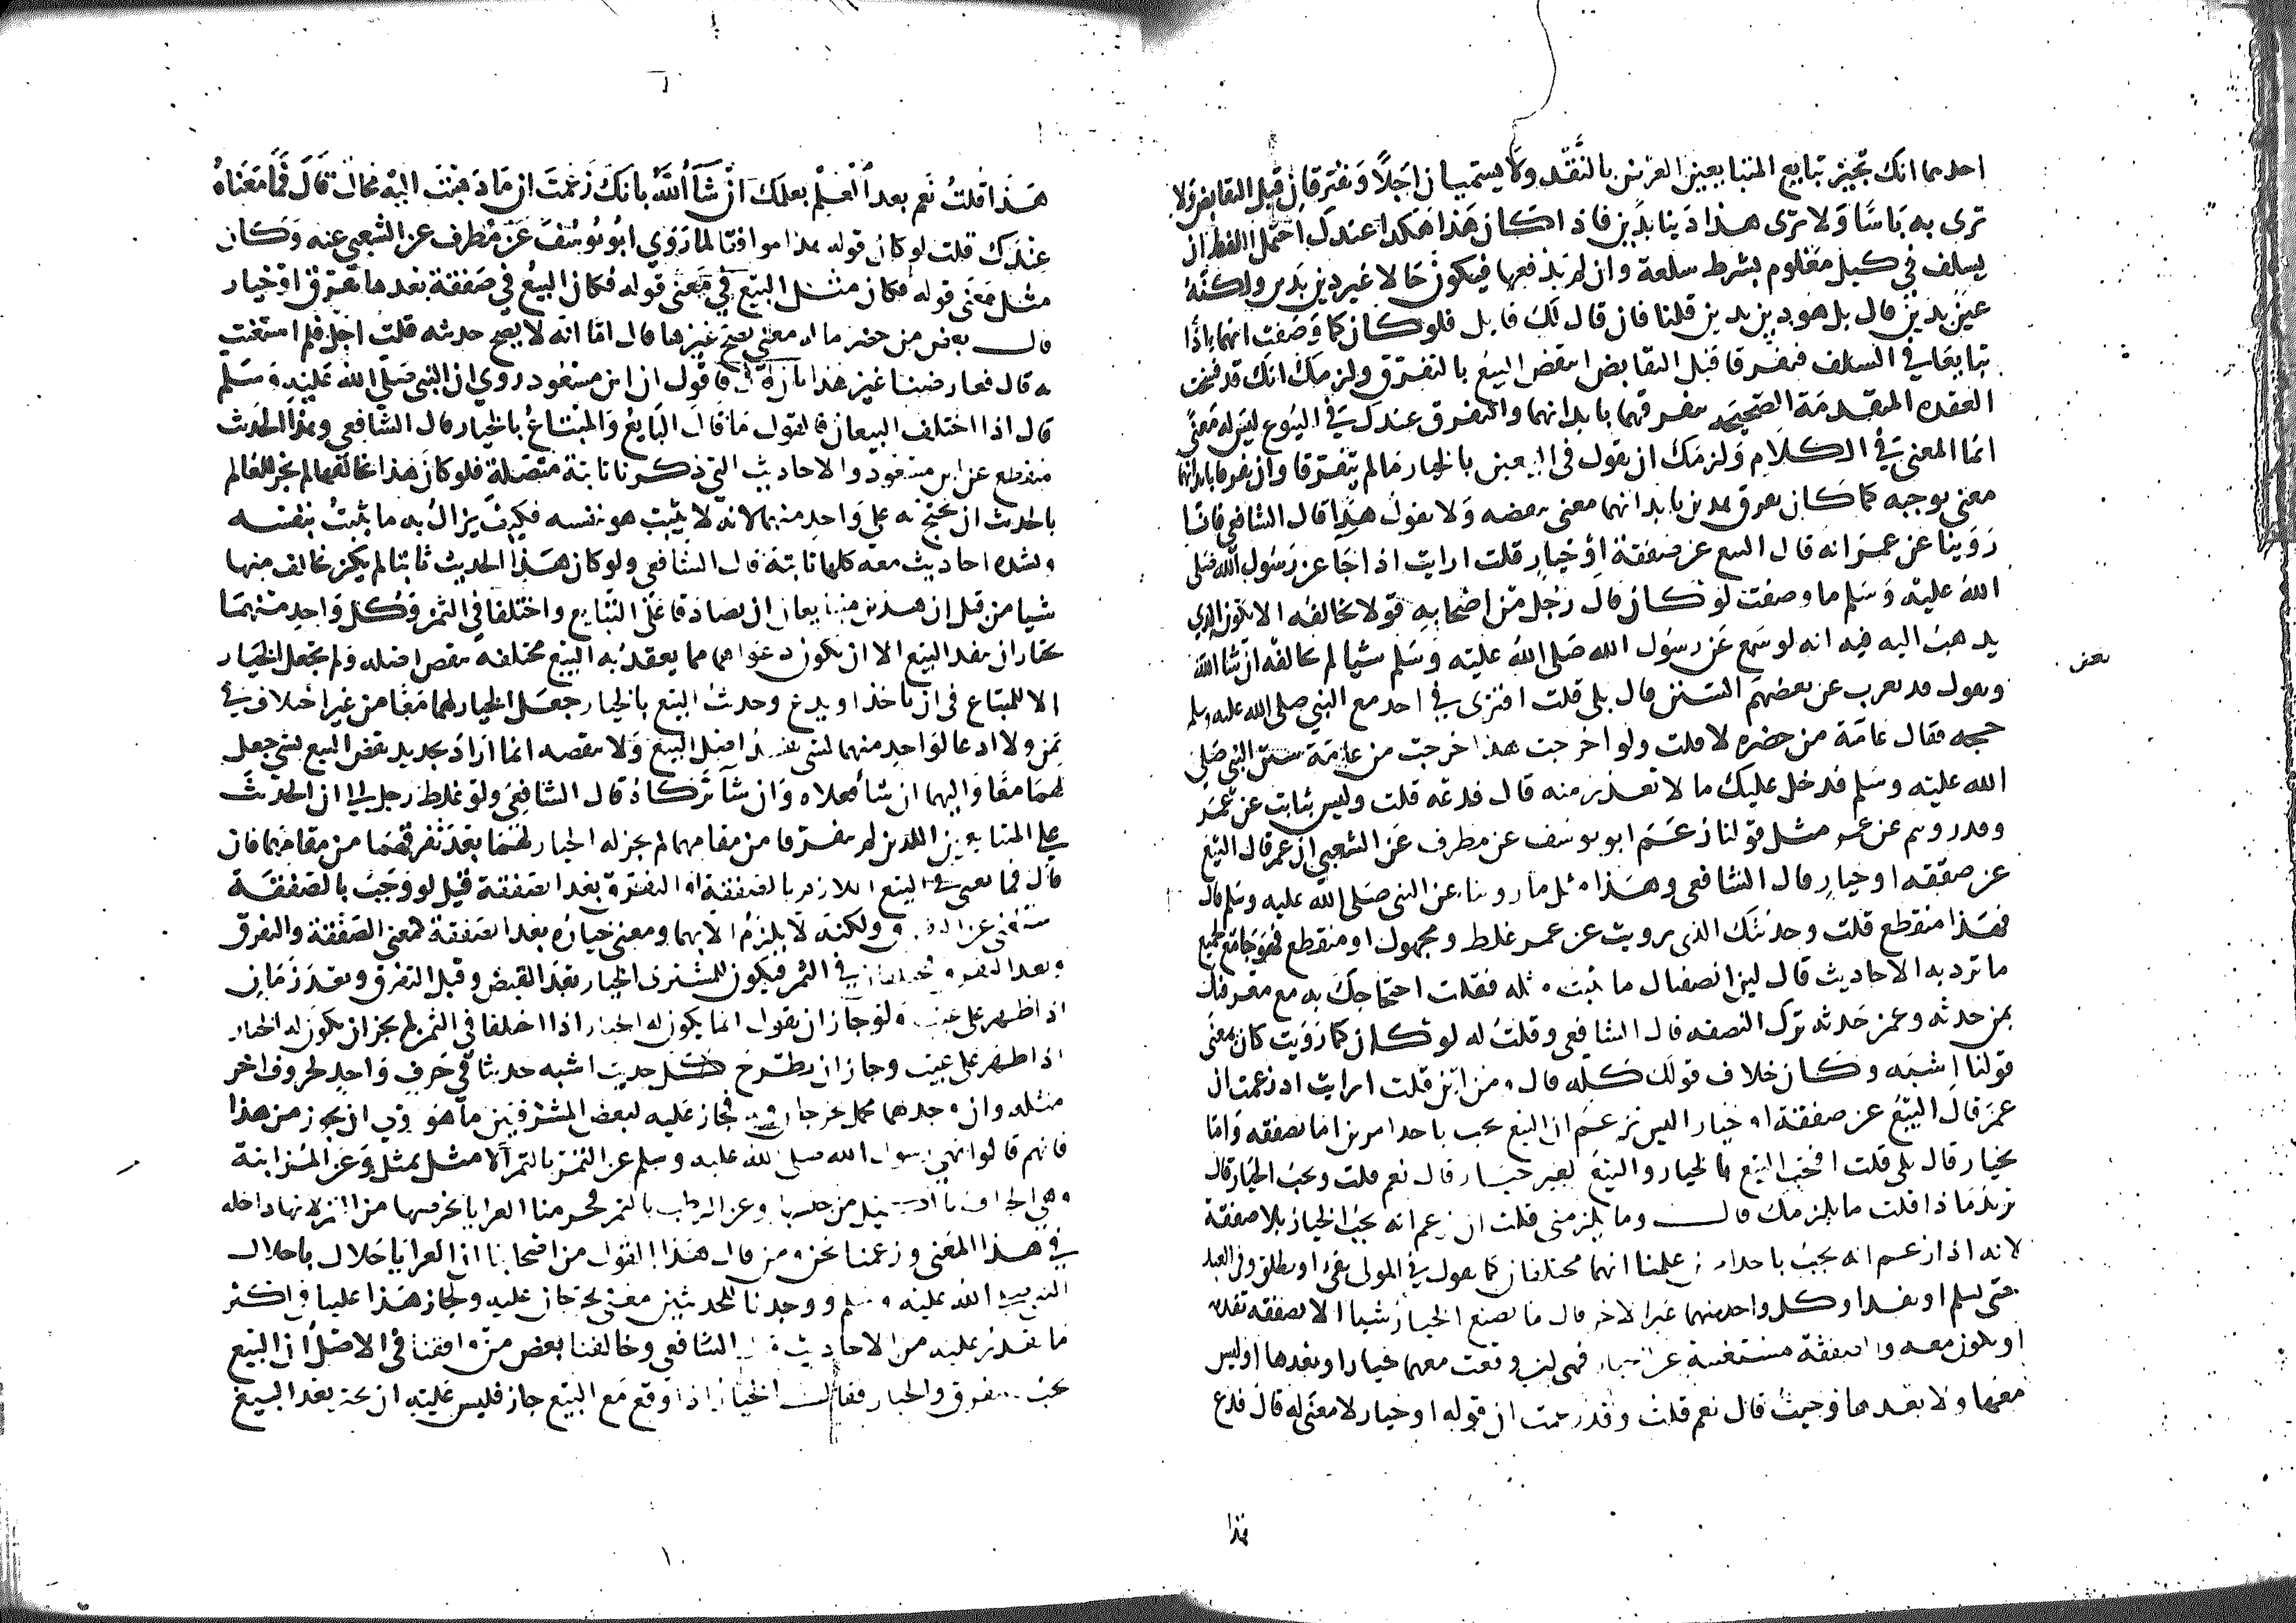 احدهما انك تجيز تبايع المتبايعين العرض بالنقد ولا يسميان اجلا ويفترقان قبل التقابض ولا
ترى به باسا ولا ترى هذا دينا بدين فاذا كان هذا هكذا عندك احتمل اللفظ ان
يسلف في كيل معلوم بشرط سلعة وان لم يدفعها فيكون حالا غير دين بدين ولكنه
عين بدين قال بل هو دين بدين قلنا فان قال لك قايل فلو كان كما وصفت انهما اذا
تبايعا في السلف فتفرقا قبل التقابض انتقض البيع بالتفرق ولزمك انك قد فسخت
العقده المتقدمة الصحيحه بتفرقهما بابدانهما والتفرق عندك في البيوع ليس له معنى
انما المعنى في الكلام ولزمك ان تقول في البيعين بالخيار مالم يتفرقا وان تفرقا بابدانهما
معنى يوجبه كما كان لتفرق هذين بابدانهما معنى ينقضه ولا تقول هذا قال الشافعي فانا
روينا عن عمر انه قال البيع عن صفقة او خيار قلت ارايت اذا جا عن رسول الله صلى
الله عليه وسلم ما وصفت لو كان قال رجل من اصحابه قولا يخالفه الا يكون الذي
يذهب اليه فيه انه لو سمع عن رسول الله صلى الله عليه وسلم شيا لم يخالفه ان شا الله
بعض
وتقول قد يعزب عن بعضهم السنن قال بلى قلت افترى في احد مع النبي صلى الله عليه وسلم
حجه فقال عامة من حضره لا قلت ولو اخرجت هذا خرجت من عامة سنن النبي صلى
الله عليه وسلم فدخل عليك ما لا تعذر منه قال فدعه قلت وليس بثابت عن عمر
وقد رويتم عن عمر مثل قولنا زعم ابو يوسف عن مطرف عن الشعبي ان عمر قال البيع
عن صفقه او خيار قال الشافعي وهذا مثل ما روينا عن النبي صلى الله عليه وسلم قال
فهذا منقطع قلت وحديثك الذي رويت عن عمر غلط ومجهول او منقطع فهو جامع لجميع
ما ترد به الاحاديث قال لين انصفناك ما يثبت مثله فقلت احتجاجك به مع معرفتك
بمن حدثه وعمن حدثه ترك النصفه قال الشافعي وقلت له لو كان كما رويت كان بمعنى
قولنا اشبه وكان خلاف قولك كله قال ومن اين قلت ارايت اذ زعمت ان
عمر قال البيع عن صفقة او خيار اليس تزعم ان البيع يجب باحد امرين اما بصفقه واما
بخيار قال بلى قلت افيجب البيع بالخيار والبيع بغير خيار قال نعم قلت ويجب الخيار قال
تريد ماذا قلت ما يلزمك قال وما يلزمني قلت ان تزعم انه يجب الخيار بلا صفقة
لانه اذا زعم انه يجب باحد امرين علمنا انهما مختلفان كما تقول في المولى يفي او يطلق وفي العبد
يجني يسلم او يفدا وكل واحد منهما غير الاخر قال ما يصنع الخيار شيا الا بصفقه تقدمه
او تكون معه والصفقة مستغنية عن الخيار فهي ان وقعت معها خيار او بعدها او ليس
معها ولا بعدها وجبت قال نعم قلت وقد زعمت ان قوله او خيار لا معنى له قال فدع
هذا
هذا قلت نعم بعد العلم بعلمك ان شا الله بانك زعمت ان ما ذهبت اليه محال قال فما معناه
عندك قلت لو كان قوله هذا موافقا لما روى ابو يوسف عن مطرف عن الشعبي عنه وكان
مثل معنى قوله فكان مثل البيع في معنى قوله فكان البيع في صفقة بعدها تفرق او خيار
قال بعض من حضر ما له معنى يصح غيرها قال اما انه لا يصح حديثه قلت اجل فلم استعنت
به قال فعارضنا غير هذا بان قال فاقول ان ابن مسعود روى ان النبي صلى الله عليه وسلم
قال اذا اختلف البيعان فالقول ما قال البايع والمبتاع بالخيار قال الشافعي وهذا الحديث
منقطع عن ابن مسعود والاحاديث التي ذكرنا ثابتة متصلة فلو كان هذا يخالفها لم يجز للعالم
بالحديث ان يحتج به على واحد منهما لانه لا يثبت هو نفسه فكيف يزال به ما يثبت بنفسه
وبشده احاديث معه كلها ثابتة قال الشافعي ولو كان هذا الحديث ثابتا لم يكن يخالف منها
شيا من قبل ان هذين متبايعان ان تصادقا على التبايع واختلفا في الثمن فكل واحد منهما
يختار ان ينفذ البيع الا ان تكون دعواهما مما يعقد به البيع مختلفه تنقض اصله ولم يجعل الخيار
الا للمبتاع في ان ياخذ او يدع وحديث البيع بالخيار جعل الخيار لهما معا من غير اختلاف في
ثمن ولا ادعا لواحد منهما لشي يفسد اصل البيع ولا ينقضه انما اراد تجديد نقض البيع لشي جعل
لهما معا واليهما ان شا فعلاه وان شا تركاه قال الشافعي ولو غلط رجل الى ان الحديث
على المتبايعين اللذين لم يتفرقا من مقامهما لم يجز له الخيار لهما بعد تفرقهما من مقامهما فان
قال فما يعني في البيع اللازم بالصفقة او التفرق بعد الصفقة قيل لو وجب بالصفقة
استغنى عن ولكنه لا يلزم الا بهما ومعنى خياره بعد الصفقة كمعنى الصفقة والتفرق
وبعد التفرق في الثمن فيكون للمشتري الخيار بعد القبض وقبل التفرق وبعد زمان
اذا ظهر على عيب ولو جاز ان نقول انما يكون له الخيار اذا اختلفا في الثمن لم يجز ان يكون له الخيار
اذا ظهر على عيب وجاز ان يطرح كل حديث اشبه حديثا في حرف واحد لحروف اخر
مثله وان وجدهما محمل يخرجان فيه فجاز عليه لبعض المشرقيين ما هو اولى ان يجوز من هذا
فانهم قالوا نهى رسول الله صلى الله عليه وسلم عن التمر بالتمر الا مثل بمثل وعن المزابنة
وهي الجزاف بالكيل من جنسها وعن الرطب بالتمر فحرمنا العرايا بخرصها من التمر لانها داخله
في هذا المعنى وزعمنا نحن ومن قال هذا القول من اصحابنا ان العرايا حلال باحلال
النبي صلى الله عليه وسلم ووجدنا للحديثين معنى يخرجان عليه ولجاز هذا علينا في اكثر
ما يقدر عليه من الاحاديث قال الشافعي وخالفنا بعض من وافقنا في الاصل ان البيع
يجب بالتفرق والخيار فقال الخيار اذا وقع مع البيع جاز فليس عليه ان يخير بعد البيع